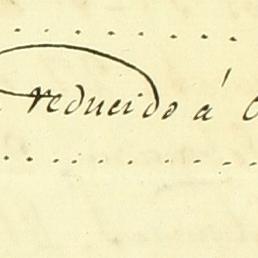 reducido á